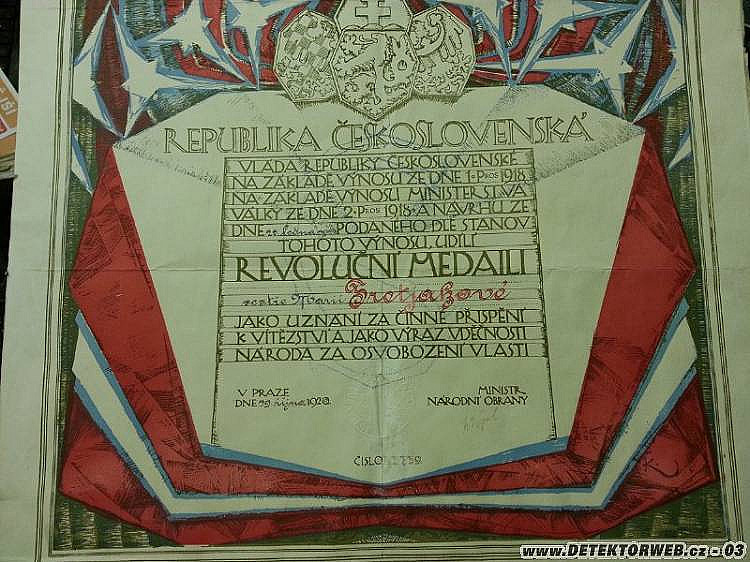 REPUBLIKA ČESKOSLOVENSKÁ
VLÁDA REPUBLIKY ČESKOSLOVENSKÉ
NA ZÁKLADĚ VÝNOSU ZE DNE 1-PROS 1918
NA ZÁKLADĚ VÝNOSU MINISTERSTVA
VÁLKY ZE DNE 2-PROS 1918 A NÁVRHU ZE
DNE PODANÉHO DLE STANOV
TOHOTO VÝNOSU, UDÍLÍ
REVOLUČNÍ MEDAILI
Tretjakové
JAKO UZNÁNÍ ZA ČINNÉ PŘISPĚNÍ
K VÍTĚZSTVÍ A JAKO VÝRAZ VDĚČNOSTI
NÁRODA ZA OSVOBOZENÍ VLASTI
V PRAZE
DNE října 1920.
MINISTR
NÁRODNÍ OBRANY
ČÍSLO
www.DETEKTORWEB.cz - 03